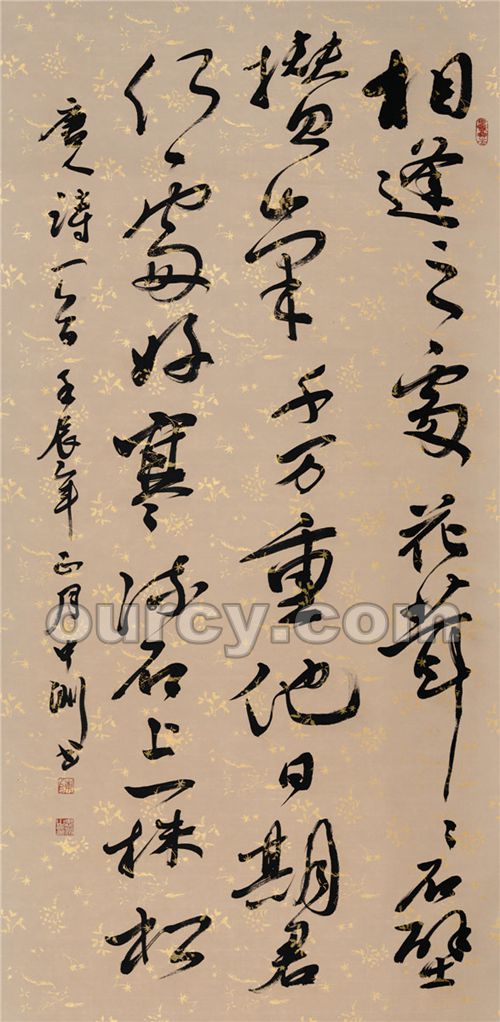 相逢之處花茸〻石壁
攢峰千万重他日期君
何處好寒流石上一株松
唐人詩一首壬辰年正月中洲书
ourcy.com